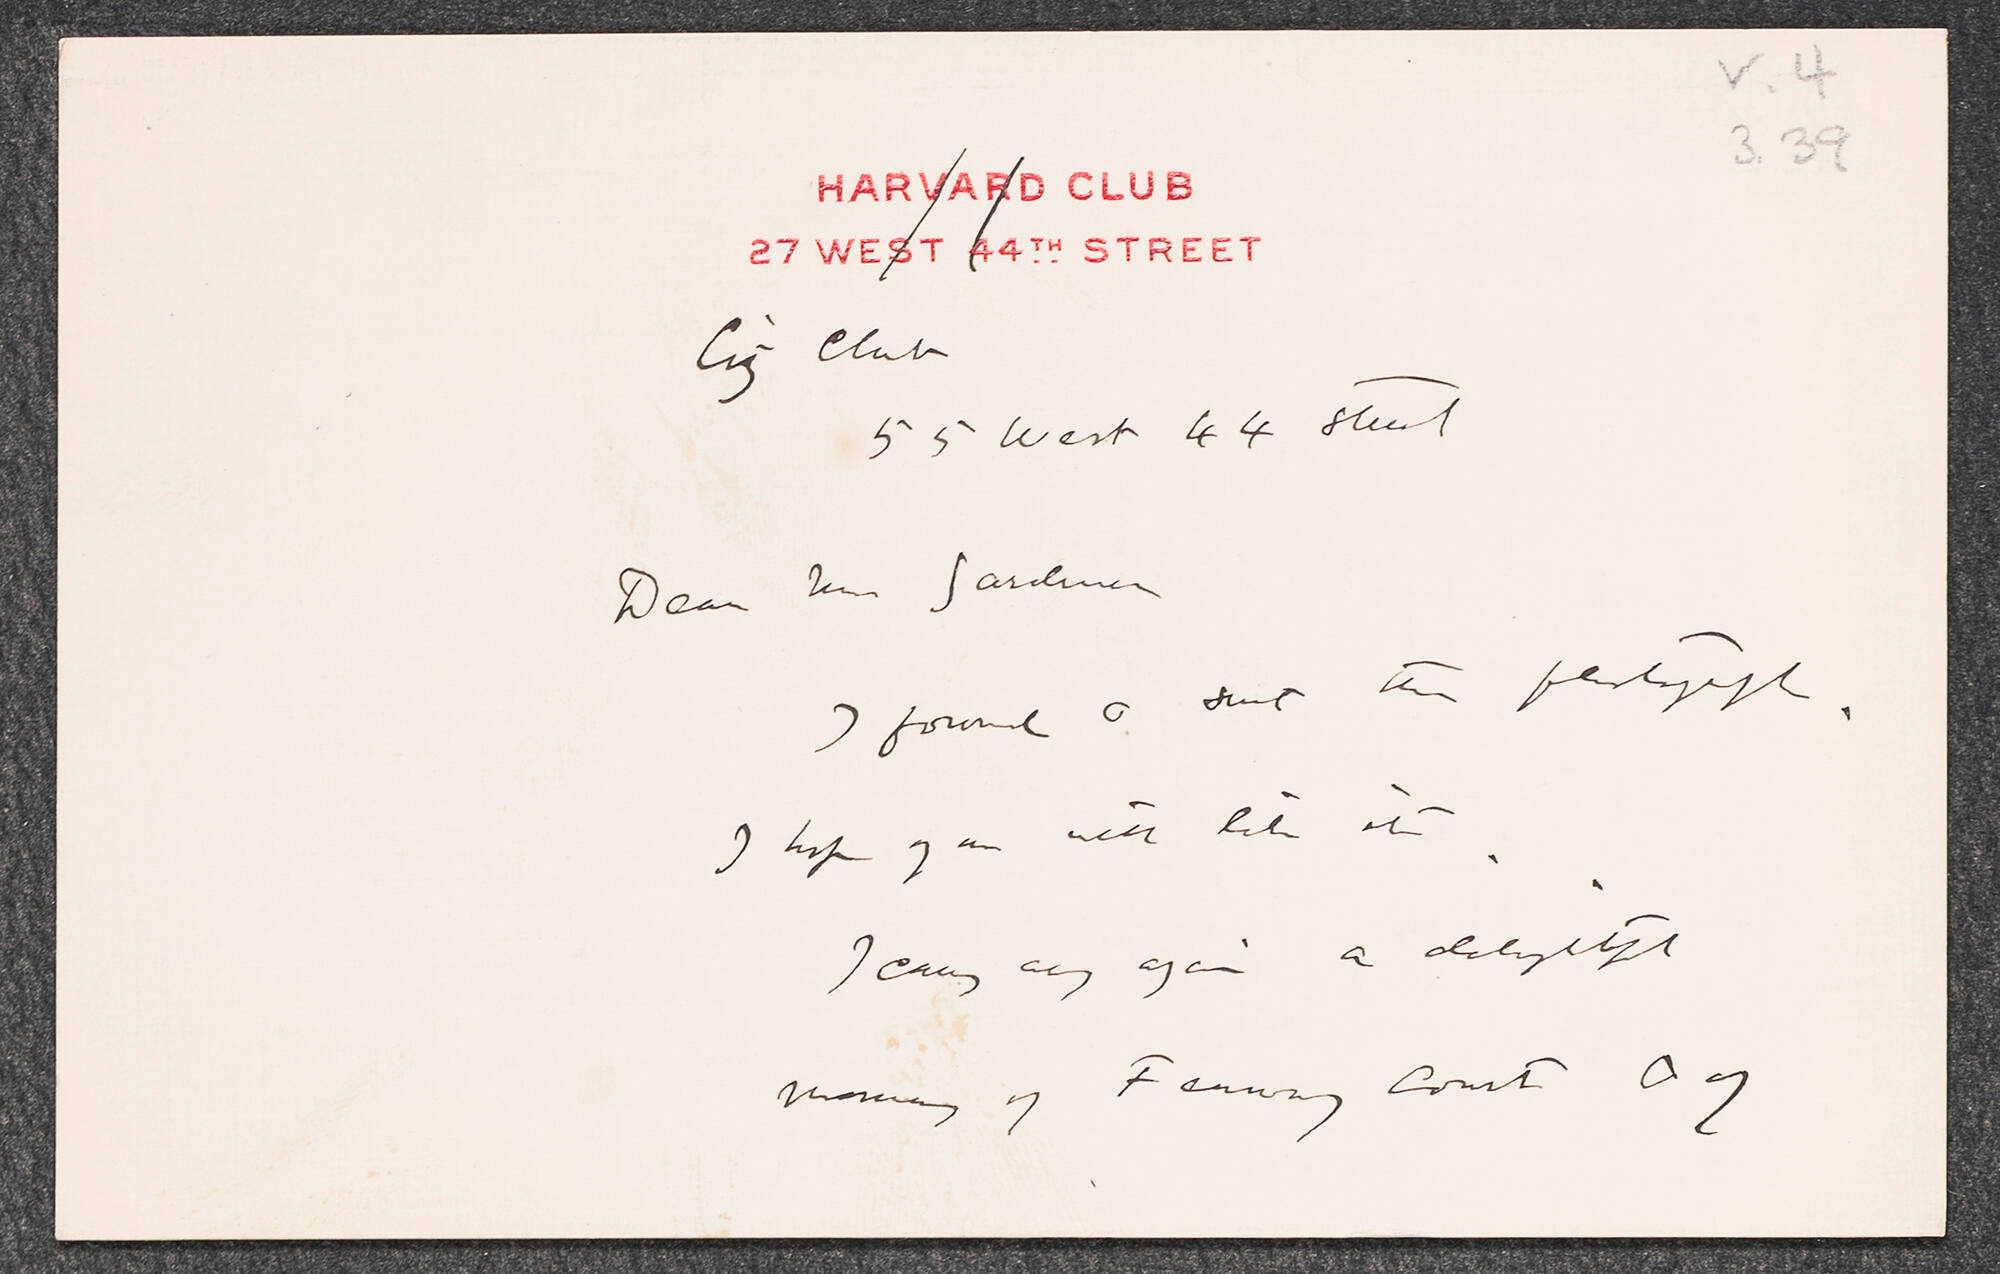 V. 4
3. 39
HARVARD CLUB
27 WEST 44TH STREET
City Club
55 West 44 Street
Dear Mrs Gardner
I found & sent the photograph.
I hope you will like it.
I carry away again a delightful
memory of Fenway Court & of